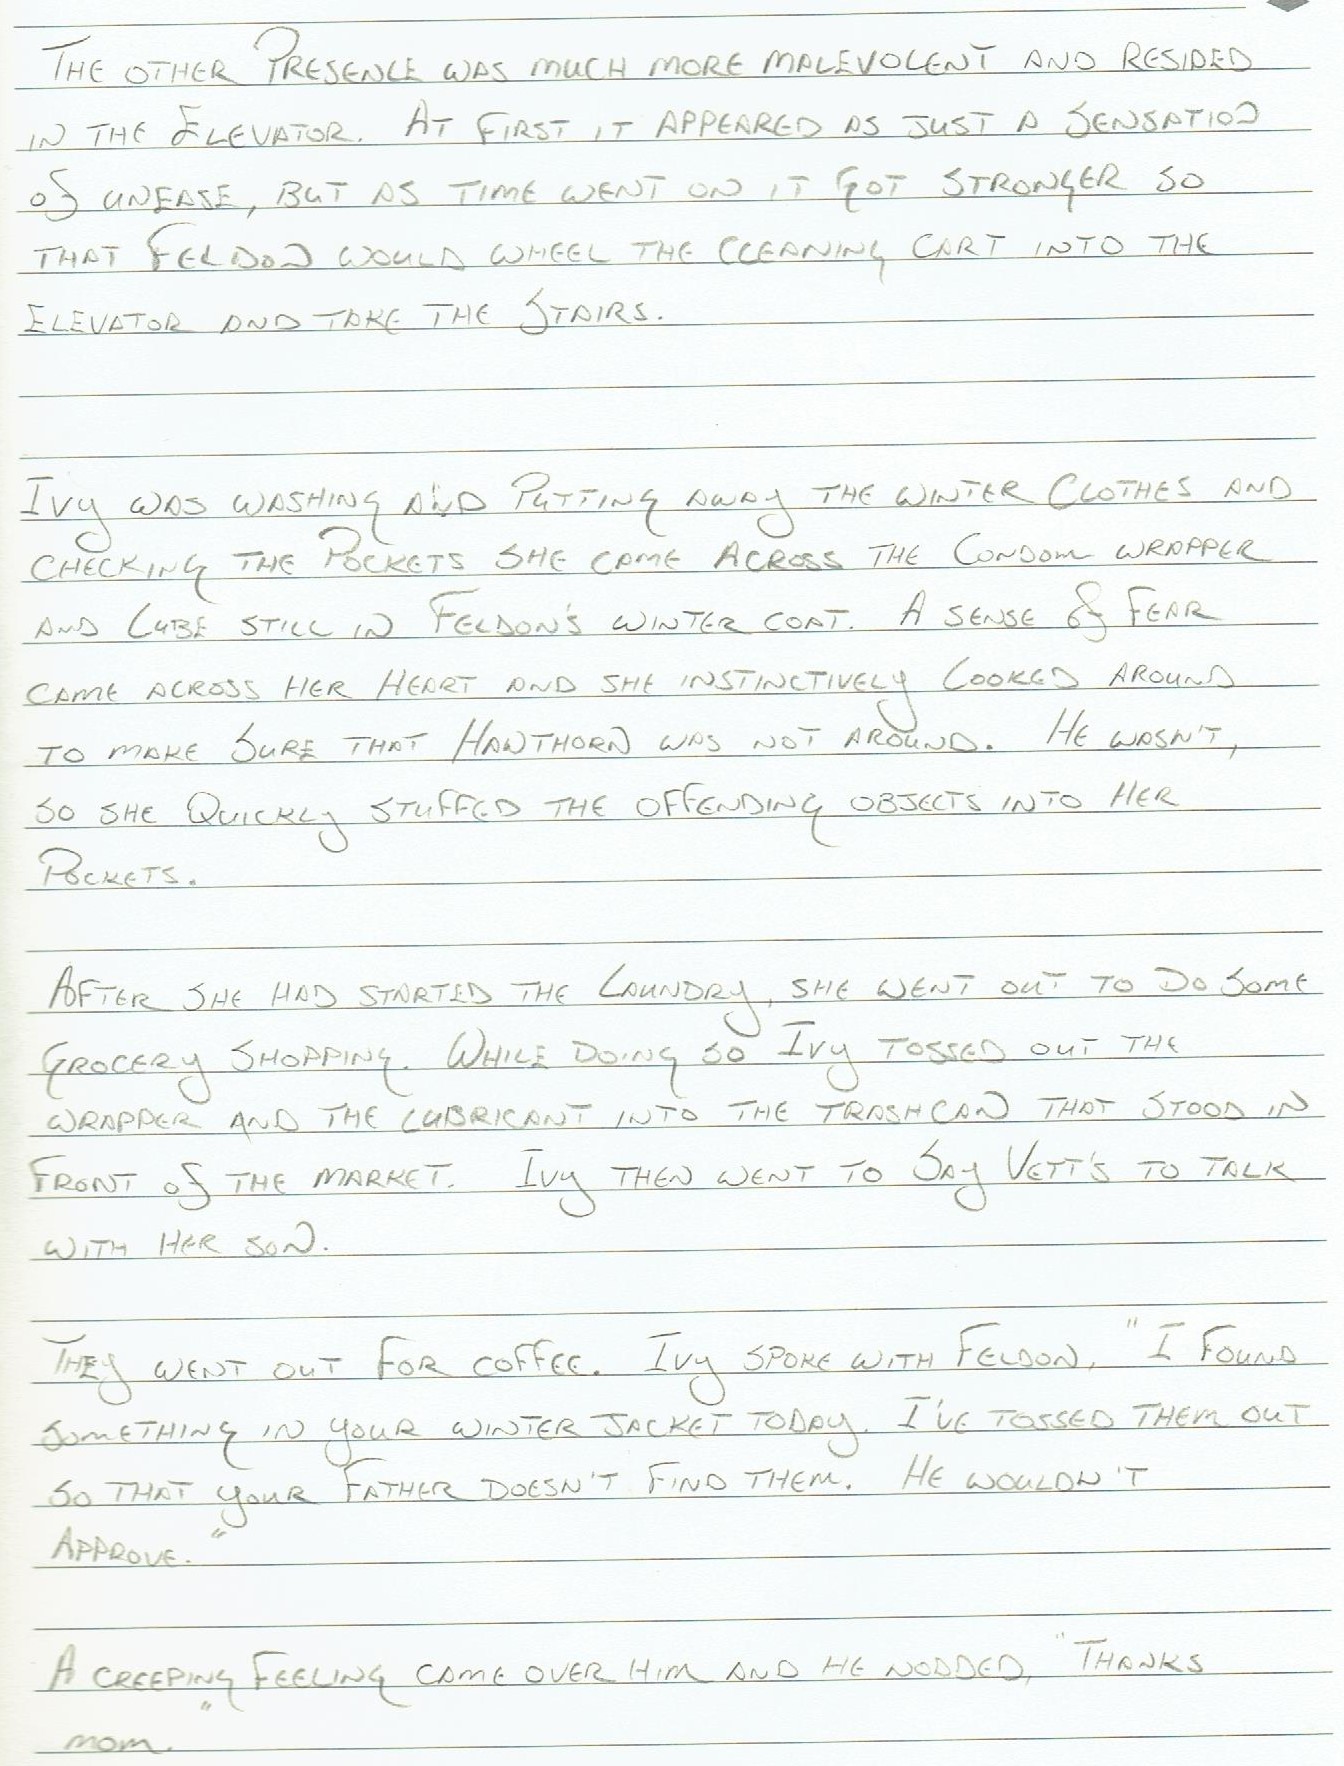 The other Presence was much more malevolent and resided
in the Elevator. At first it appeared as just a Sensation
of unease, but as time went on it got stronger so
that Feldon would wheel the cleaning cart into the
Elevator and take the Stairs.
Ivy was washing and Putting away the winter Clothes and
checking the Pockets she came Across the Condom wrapper
and Lube still in Feldon's winter coat. A sense of Fear
came across her Heart and she instinctively Looked around
to make Sure that Hawthorn was not around. He wasn't,
so she Quickly stuffed the offending objects into Her
Pockets.
After she had started the Laundry, she went out to Do Some
Grocery Shopping. While doing so Ivy tossed out the
wrapper and the lubricant into the trashcan that stood in
Front of the market. Ivy then went to Say Vett's to talk
with her son.
They went out For coffee. Ivy spoke with Feldon, "I Found
something in your winter jacket today. I've tossed them out
so that your Father doesn't find them. He wouldn't
Approve."
A creeping Feeling came over him and he nodded, "Thanks
mom."